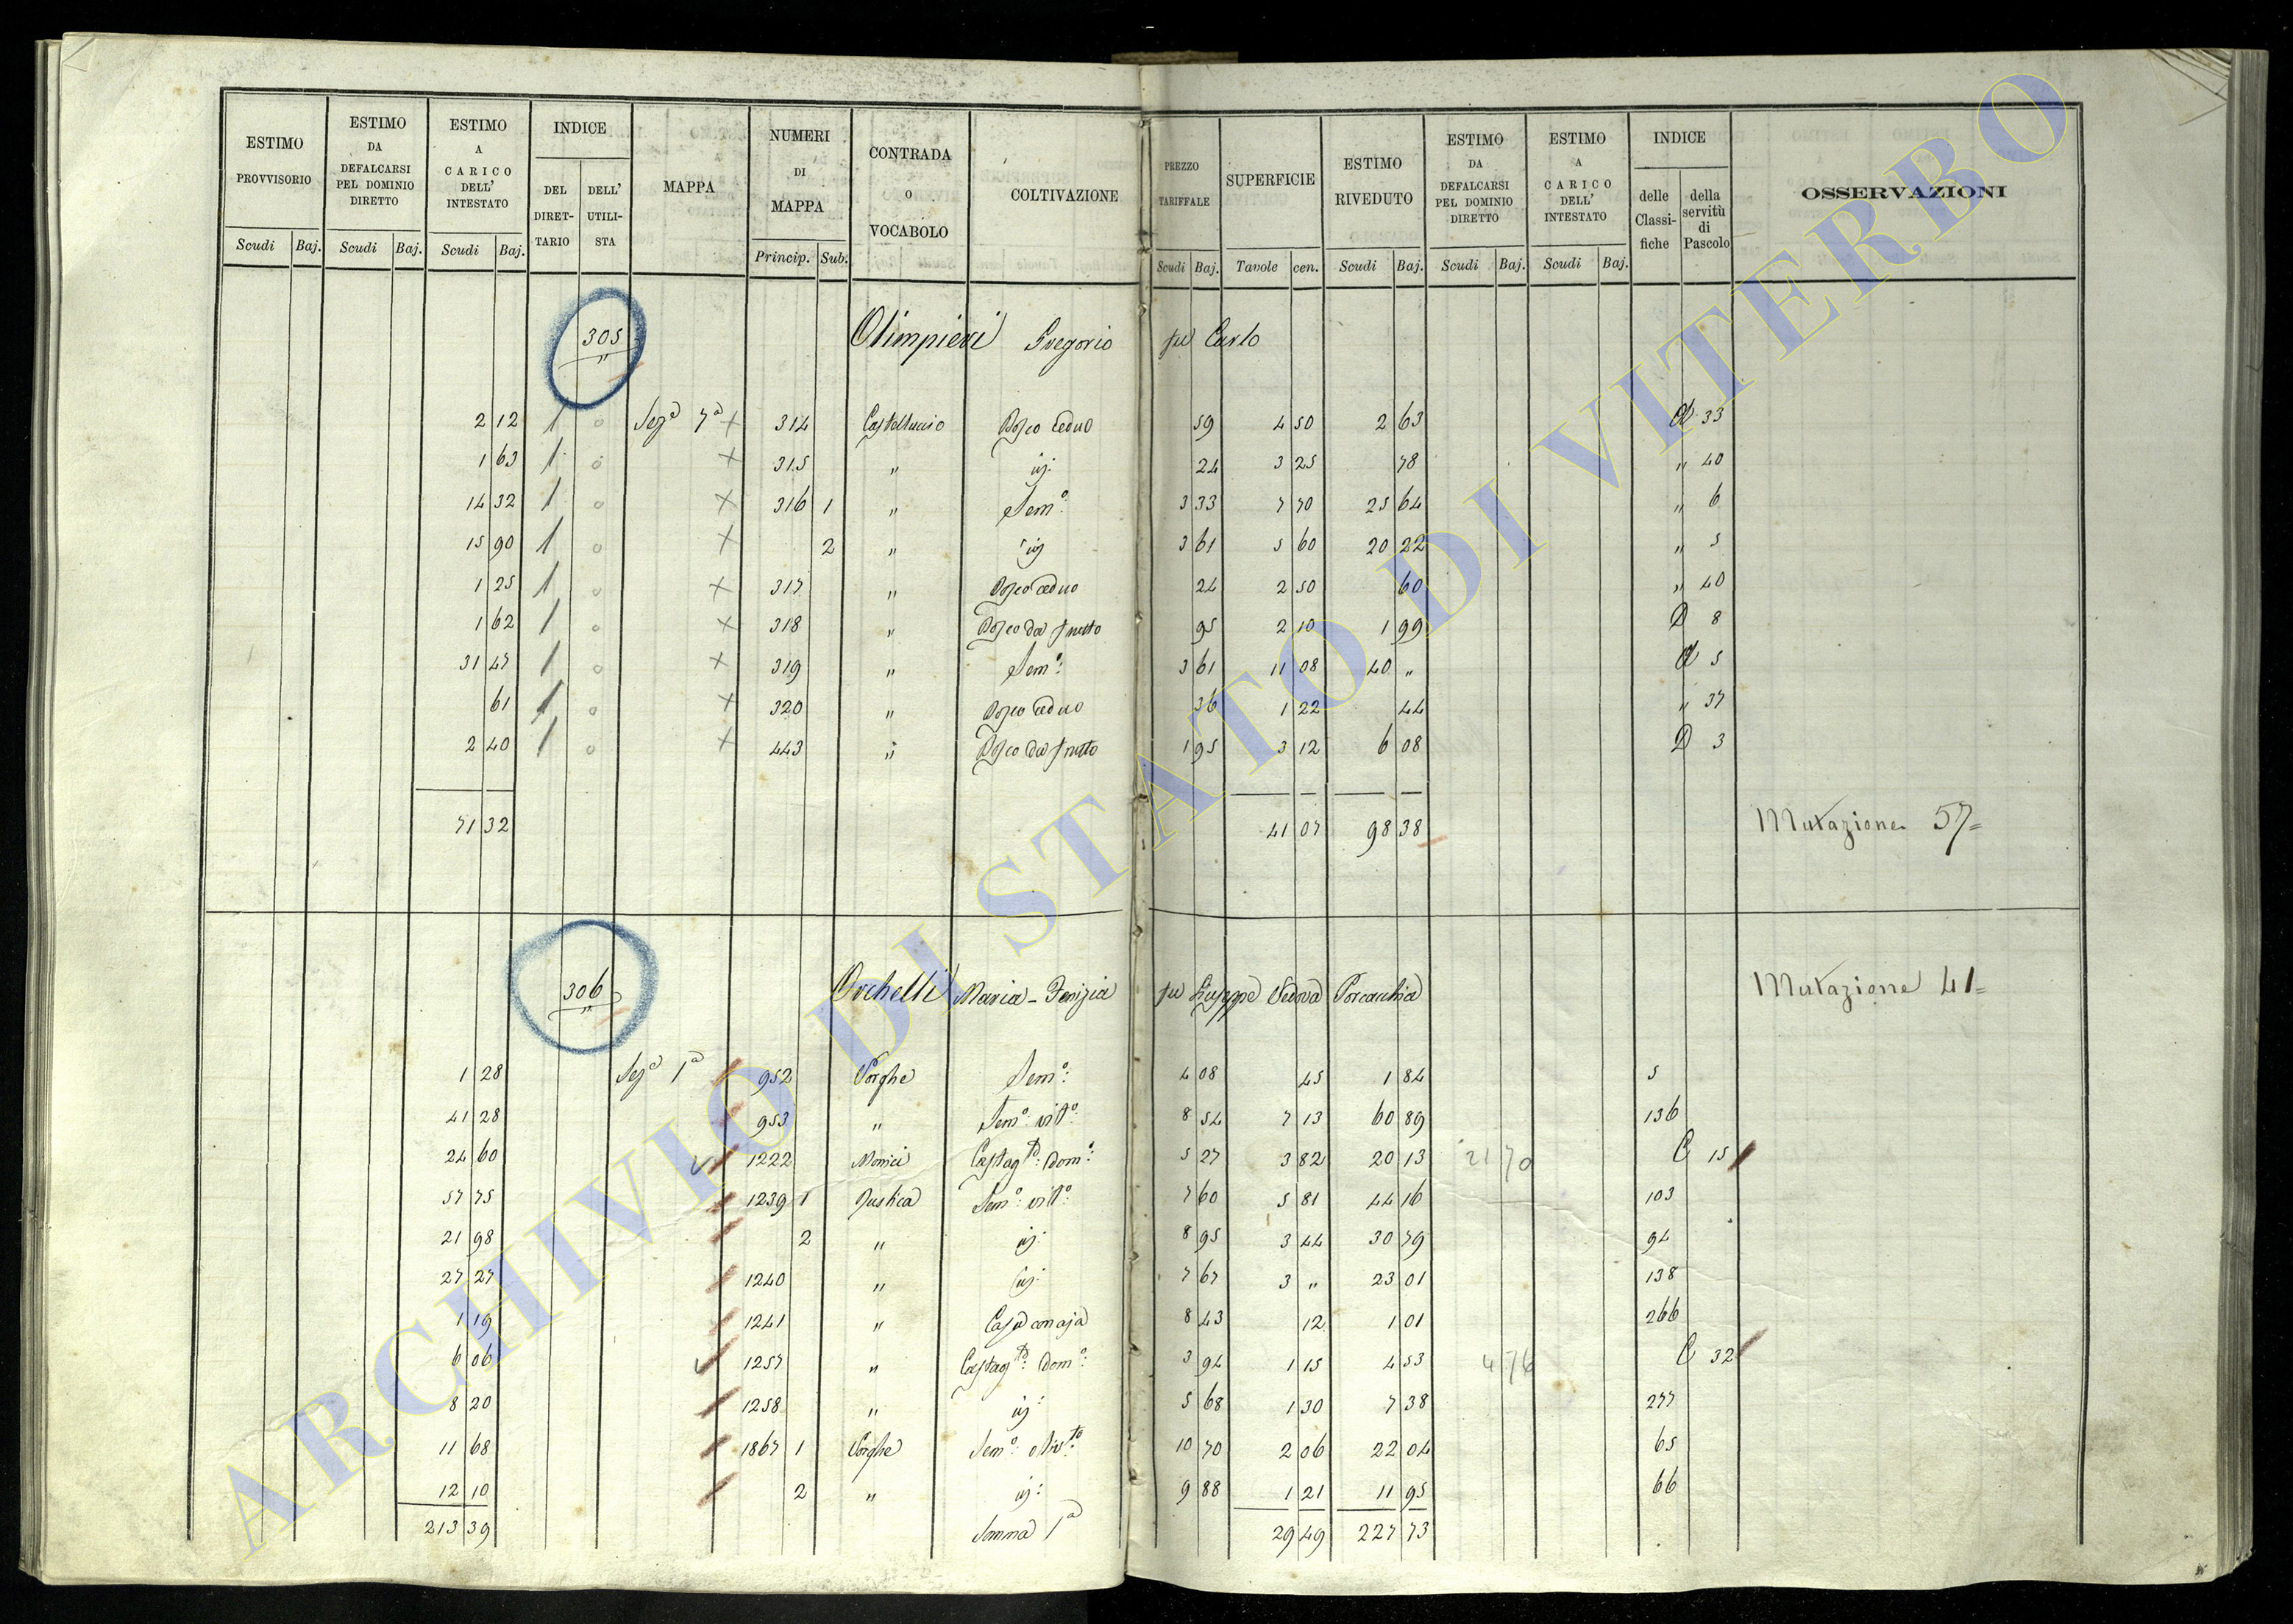 ESTIMO PROVVISORIO Scudi Baj.
ESTIMO DA DEFALCARSI PEL DOMINIO DIRETTO Scudi Baj.
ESTIMO A CARICO DELL' INTESTATO Scudi Baj.
INDICE DEL DIRET- TARIO DELL' UTILI- STA
MAPPA
NUMERI DI MAPPA Princip. Sub.
CONTRADA o VOCABOLO
COLTIVAZIONE
PREZZO TARIFFALE Scudi Baj.
SUPERFICIE Tavole cen.
ESTIMO RIVEDUTO Scudi Baj.
ESTIMO DA DEFALCARSI PEL DOMINIO DIRETTO Scudi Baj.
ESTIMO A CARICO DELL' INTESTATO Scudi Baj.
INDICE delle Classi- fiche della servitù di Pascolo
OSSERVAZIONI
305 Olimpieri Gregorio fu Carlo
2 12 1 o Sez.e 7a x 314 Castelluccio Bosco ceduo 59 4 50 2 63 A 33
1 63 1 o x 315 " id: 24 3 25 78 " 40
14 32 1 o x 316 1 " Semo: 3 33 7 70 25 64 " 6
15 90 1 o x 2 " id 3 61 5 60 20 22 " 5
1 25 1 o x 317 " Bosco ceduo 24 2 50 60 " 40
1 62 1 o x 318 " Bosco da frutto 95 2 10 1 99 D 8
31 47 1 o x 319 " Semo: 3 61 11 08 40 " A 5
61 1 o x 320 " Bosco ceduo 36 1 22 44 " 37
2 40 1 o x 443 " Bosco da frutto 1 95 3 12 6 08 D 3
71 32 41 07 98 38 Mutazione 57=
306 Orchelli Maria - Fenizia fu Giuseppe Vedova Porcacchia Mutazione 41=
1 28 Sez.e 1a 952 Vorghe Semo: 4 08 45 1 84 5
41 28 953 " Semo: vito: 8 54 7 13 60 89 136
24 60 1222 Monici Castagto: domo: 5 27 3 82 20 13 21 70 C 15
57 75 1239 1 Justica Semo: vito: 7 60 5 81 44 16 103
21 98 2 " id: 8 95 3 44 30 79 94
27 27 1240 " id: 7 67 3 " 23 01 138
1 19 1241 " Casa con aja 8 43 12 1 01 266
6 06 1257 " Castagto: domo: 3 94 1 15 4 53 4 76 C 32
8 20 1258 " id: 5 68 1 30 7 38 277
11 68 1867 1 Vorghe Semo: olivto 10 70 2 06 22 04 65
12 10 2 " id: 9 88 1 21 11 95 66
213 39 Somma 1a 29 49 227 73
ARCHIVIO DI STATO DI VITERBO